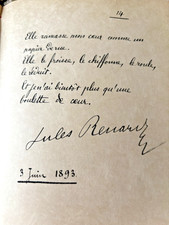 14
Elle ramasse mon cœur comme un
papier perdu.
Elle le froisse, le chiffonne, le roule,
le réduit.
Et j'ai bientôt plus qu'une
boulette de cœur.
Jules Renard
3 Juin 1893.